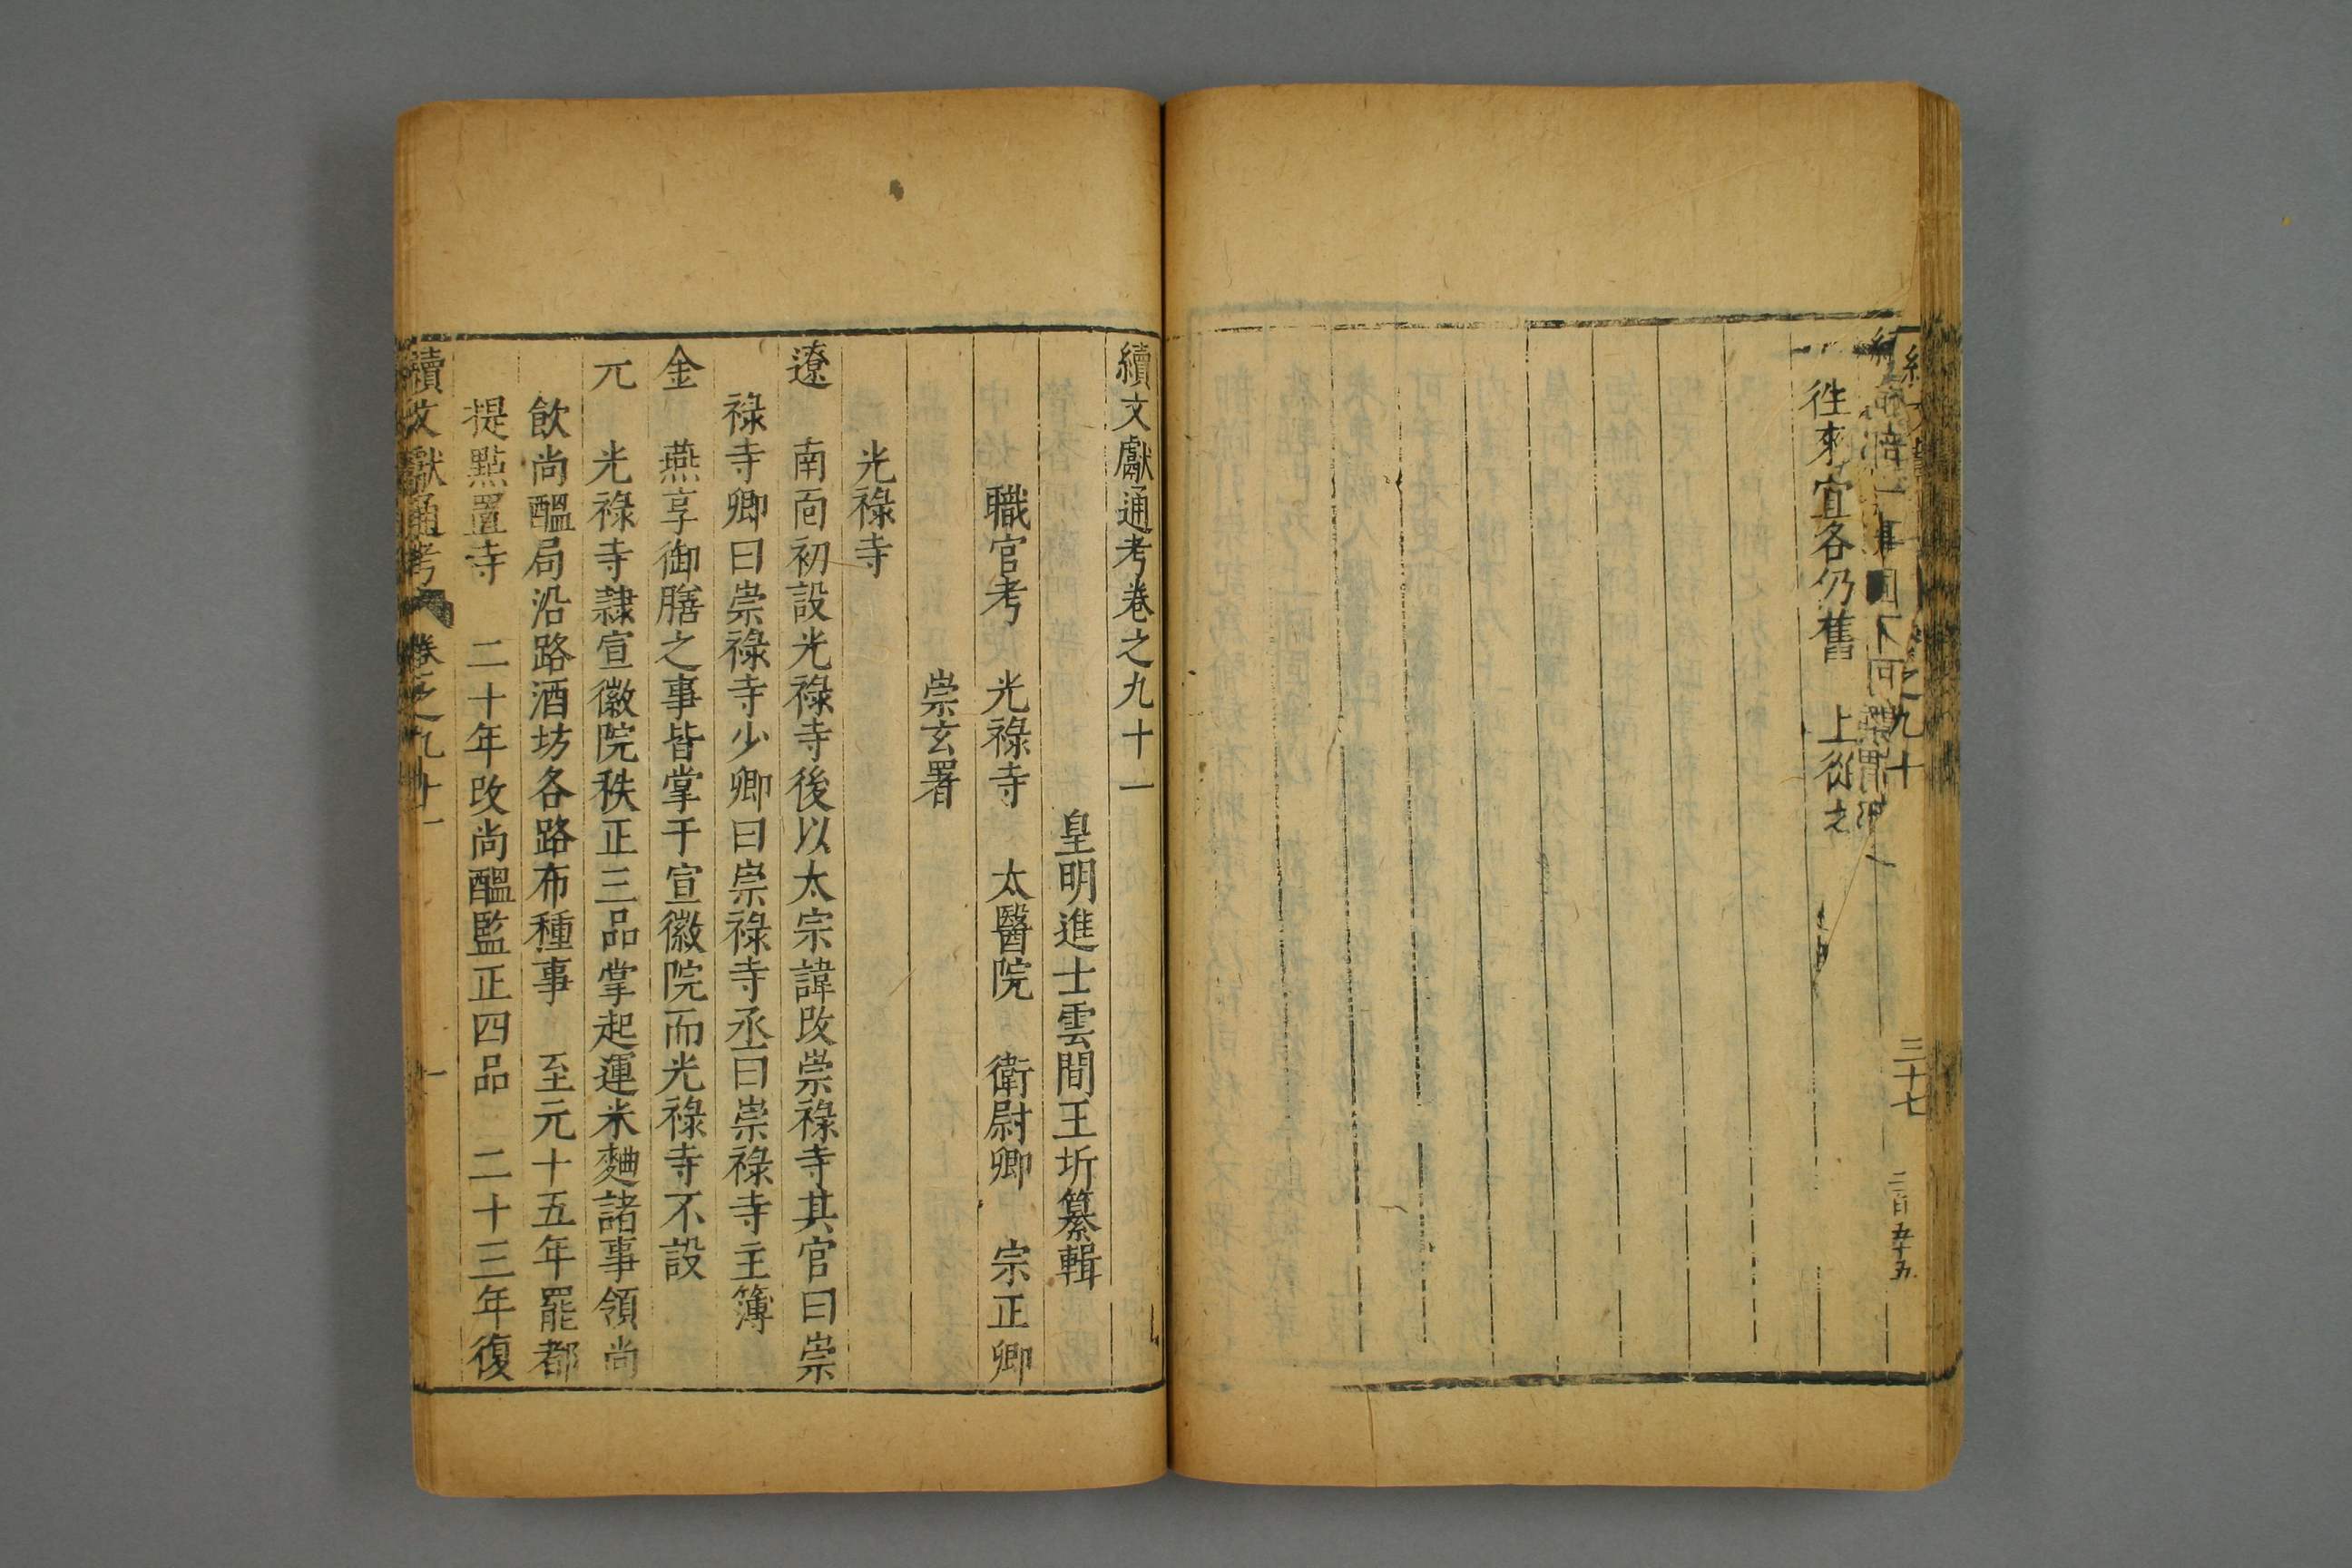 之九十
三十七
二百五十五
徃來宜各仍舊 上從之
續文獻通考卷之九十一
皇明進士雲間王圻纂輯
職官考 光祿寺 太醫院 衛尉卿 宗正卿
崇玄署
光祿寺
遼 南面初設光祿寺後以太宗諱改崇祿寺其官曰崇
祿寺卿曰崇祿寺少卿曰崇祿寺丞曰崇祿寺主簿
金 燕享御膳之事皆掌于宣徽院而光祿寺不設
元 光祿寺隸宣徽院秩正三品掌起運米麯諸事領尚
飲尚醞局沿路酒坊各路布種事 至元十五年罷都
提點置寺 二十年改尚醞監正四品 二十三年復
續文獻通考 卷之九十一 一